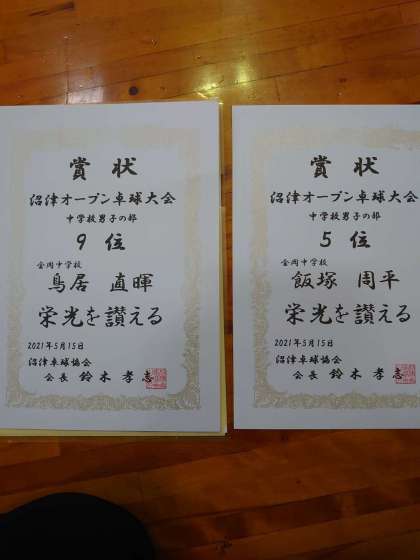 賞状
沼津オープン卓球大会
中学校男子の部
9位
金岡中学校
鳥居 直暉
栄光を讃える
2021年5月15日
沼津卓球協会
会長 鈴木孝志
賞状
沼津オープン卓球大会
中学校男子の部
5位
金岡中学校
飯塚 周平
栄光を讃える
2021年5月15日
沼津卓球協会
会長 鈴木孝志